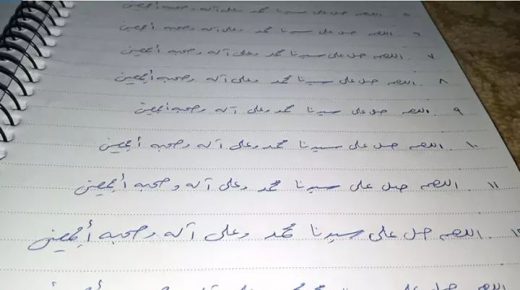 ٥ . اللهم صل على سيدنا محمد وعلى آله وصحبه أجمعين
٦ . اللهم صل على سيدنا محمد وعلى آله وصحبه أجمعين
٧ . اللهم صل على سيدنا محمد وعلى آله وصحبه أجمعين
٨ . اللهم صل على سيدنا محمد وعلى آله وصحبه أجمعين
٩ . اللهم صل على سيدنا محمد وعلى آله وصحبه أجمعين
١٠ . اللهم صل على سيدنا محمد وعلى آله وصحبه أجمعين
١١ . اللهم صل على سيدنا محمد وعلى آله وصحبه أجمعين
١٢ . اللهم صل على سيدنا محمد وعلى آله وصحبه أجمعين
اللهم صل على سيدنا محمد وعلى آله وصحبه أجمعين